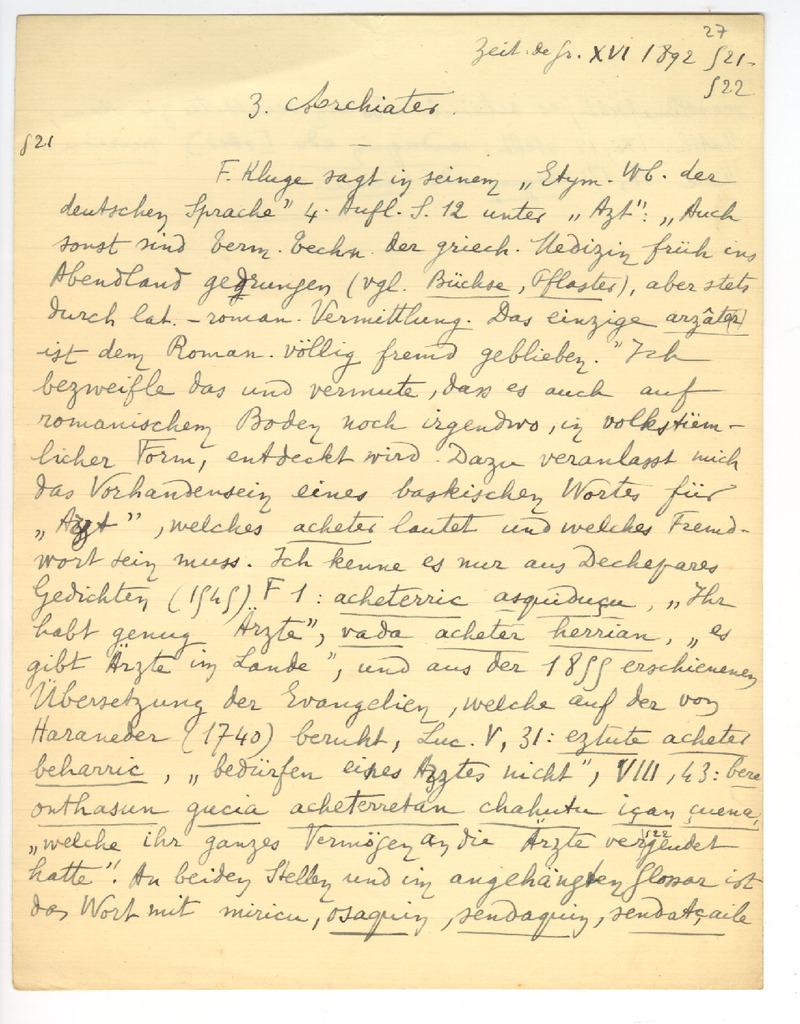 27
Zeit. de Gr. XVI 1892 521-
522
3. Archiater.
521
F. Kluge sagt in seinem „Etym. Wb. der
deutschen Sprache" 4. Aufl. S. 12 unter „Azt": „Auch
sonst sind term. techn. der griech. Medizin früh ins
Abendland gedrungen (vgl. Büchse, Pflaster), aber stets
durch lat. - roman. Vermittlung. Das einzige arzâte(r)
ist dem Roman. völlig fremd geblieben." Ich
bezweifle das und vermute, dass es auch auf
romanischem Boden noch irgendwo, in volkstüm-
licher Form, entdeckt wird. Dazu veranlasst mich
das Vorhandensein eines baskischen Wortes für
„Arzt", welches acheter lautet und welches Fremd-
wort sein muss. Ich kenne es nur aus Dechepares
Gedichten (1545) F 1: acheterric asquiduçu, „Ihr
habt genug Ärzte", vada acheter herrian, „es
gibt Ärzte im Lande", und aus der 1855 erschienenen
Übersetzung der Evangelien, welche auf der von
Haraneder (1740) beruht, Luc. V, 31: eztute acheter
beharric, „bedürfen eines Arztes nicht", VIII, 43: bere
onthasun gucia acheterretan chahutu içan çuena,
„welche ihr ganzes Vermögen an die Ärzte vergeudet
522
hatte". An beiden Stellen und im angehängten Glossar ist
das Wort mit miricu, osaquin, sendaquin, sendatçaile